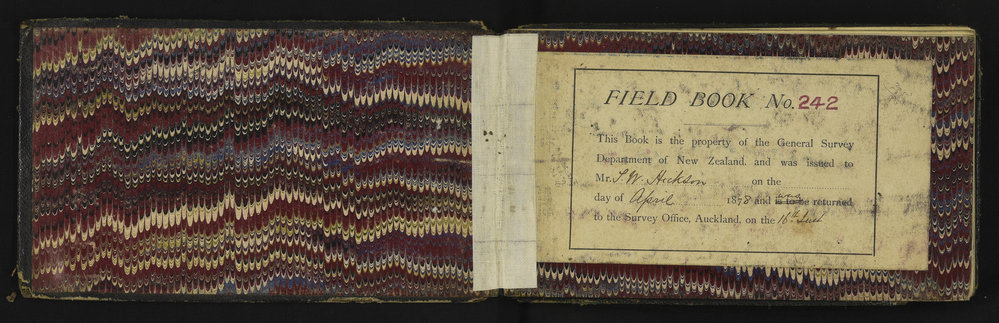 FIELD BOOK No. 242
This Book is the property of the General Survey
Department of New Zealand, and was issued to
Mr. S. W. Hickson on the
day of April 1878 and is to be was returned
to the Survey Office, Auckland, on the 16th Inst